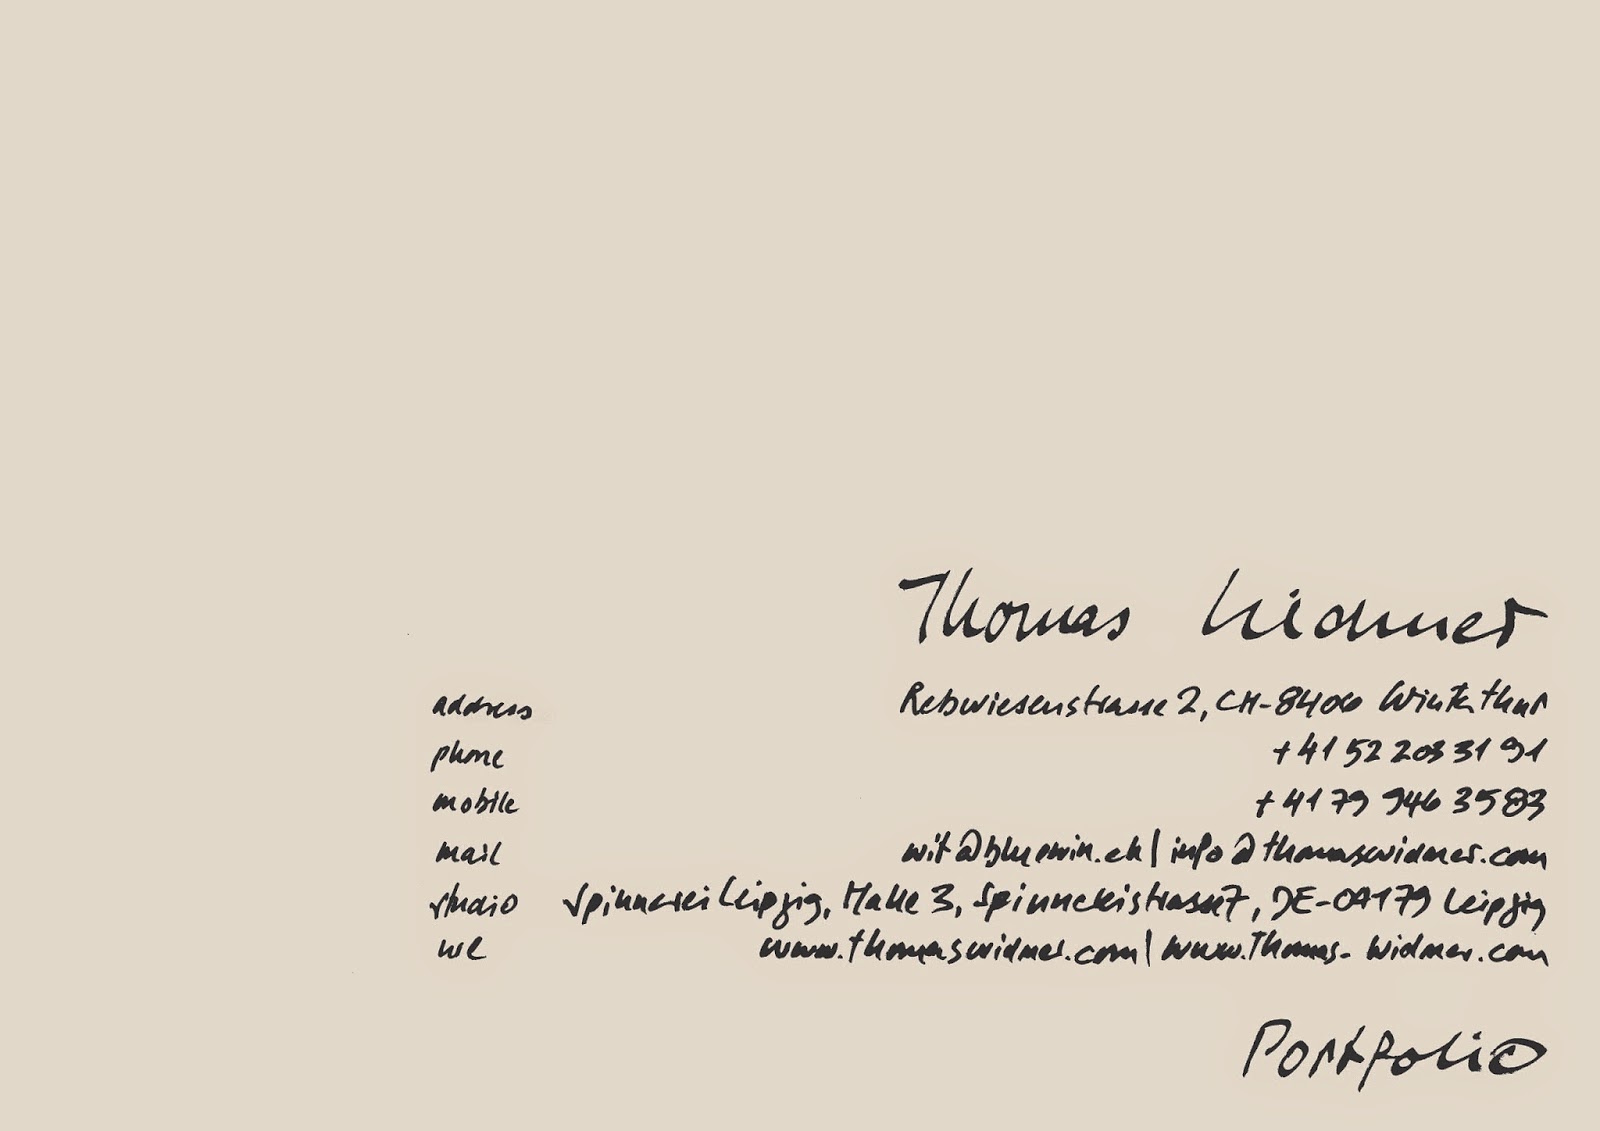 Thomas Widmer
address Rebwiesenstrasse 2, CH-8406 Winterthur
phone +41 52 203 31 91
mobile +41 79 946 35 83
mail wit@bluewin.ch | info@thomaswidmer.com
studio Spinnerei Leipzig, Halle 3, Spinnereistrasse 7, DE-04179 Leipzig
we www.thomaswidmer.com | www.Thomas-Widmer.com
Portfolio